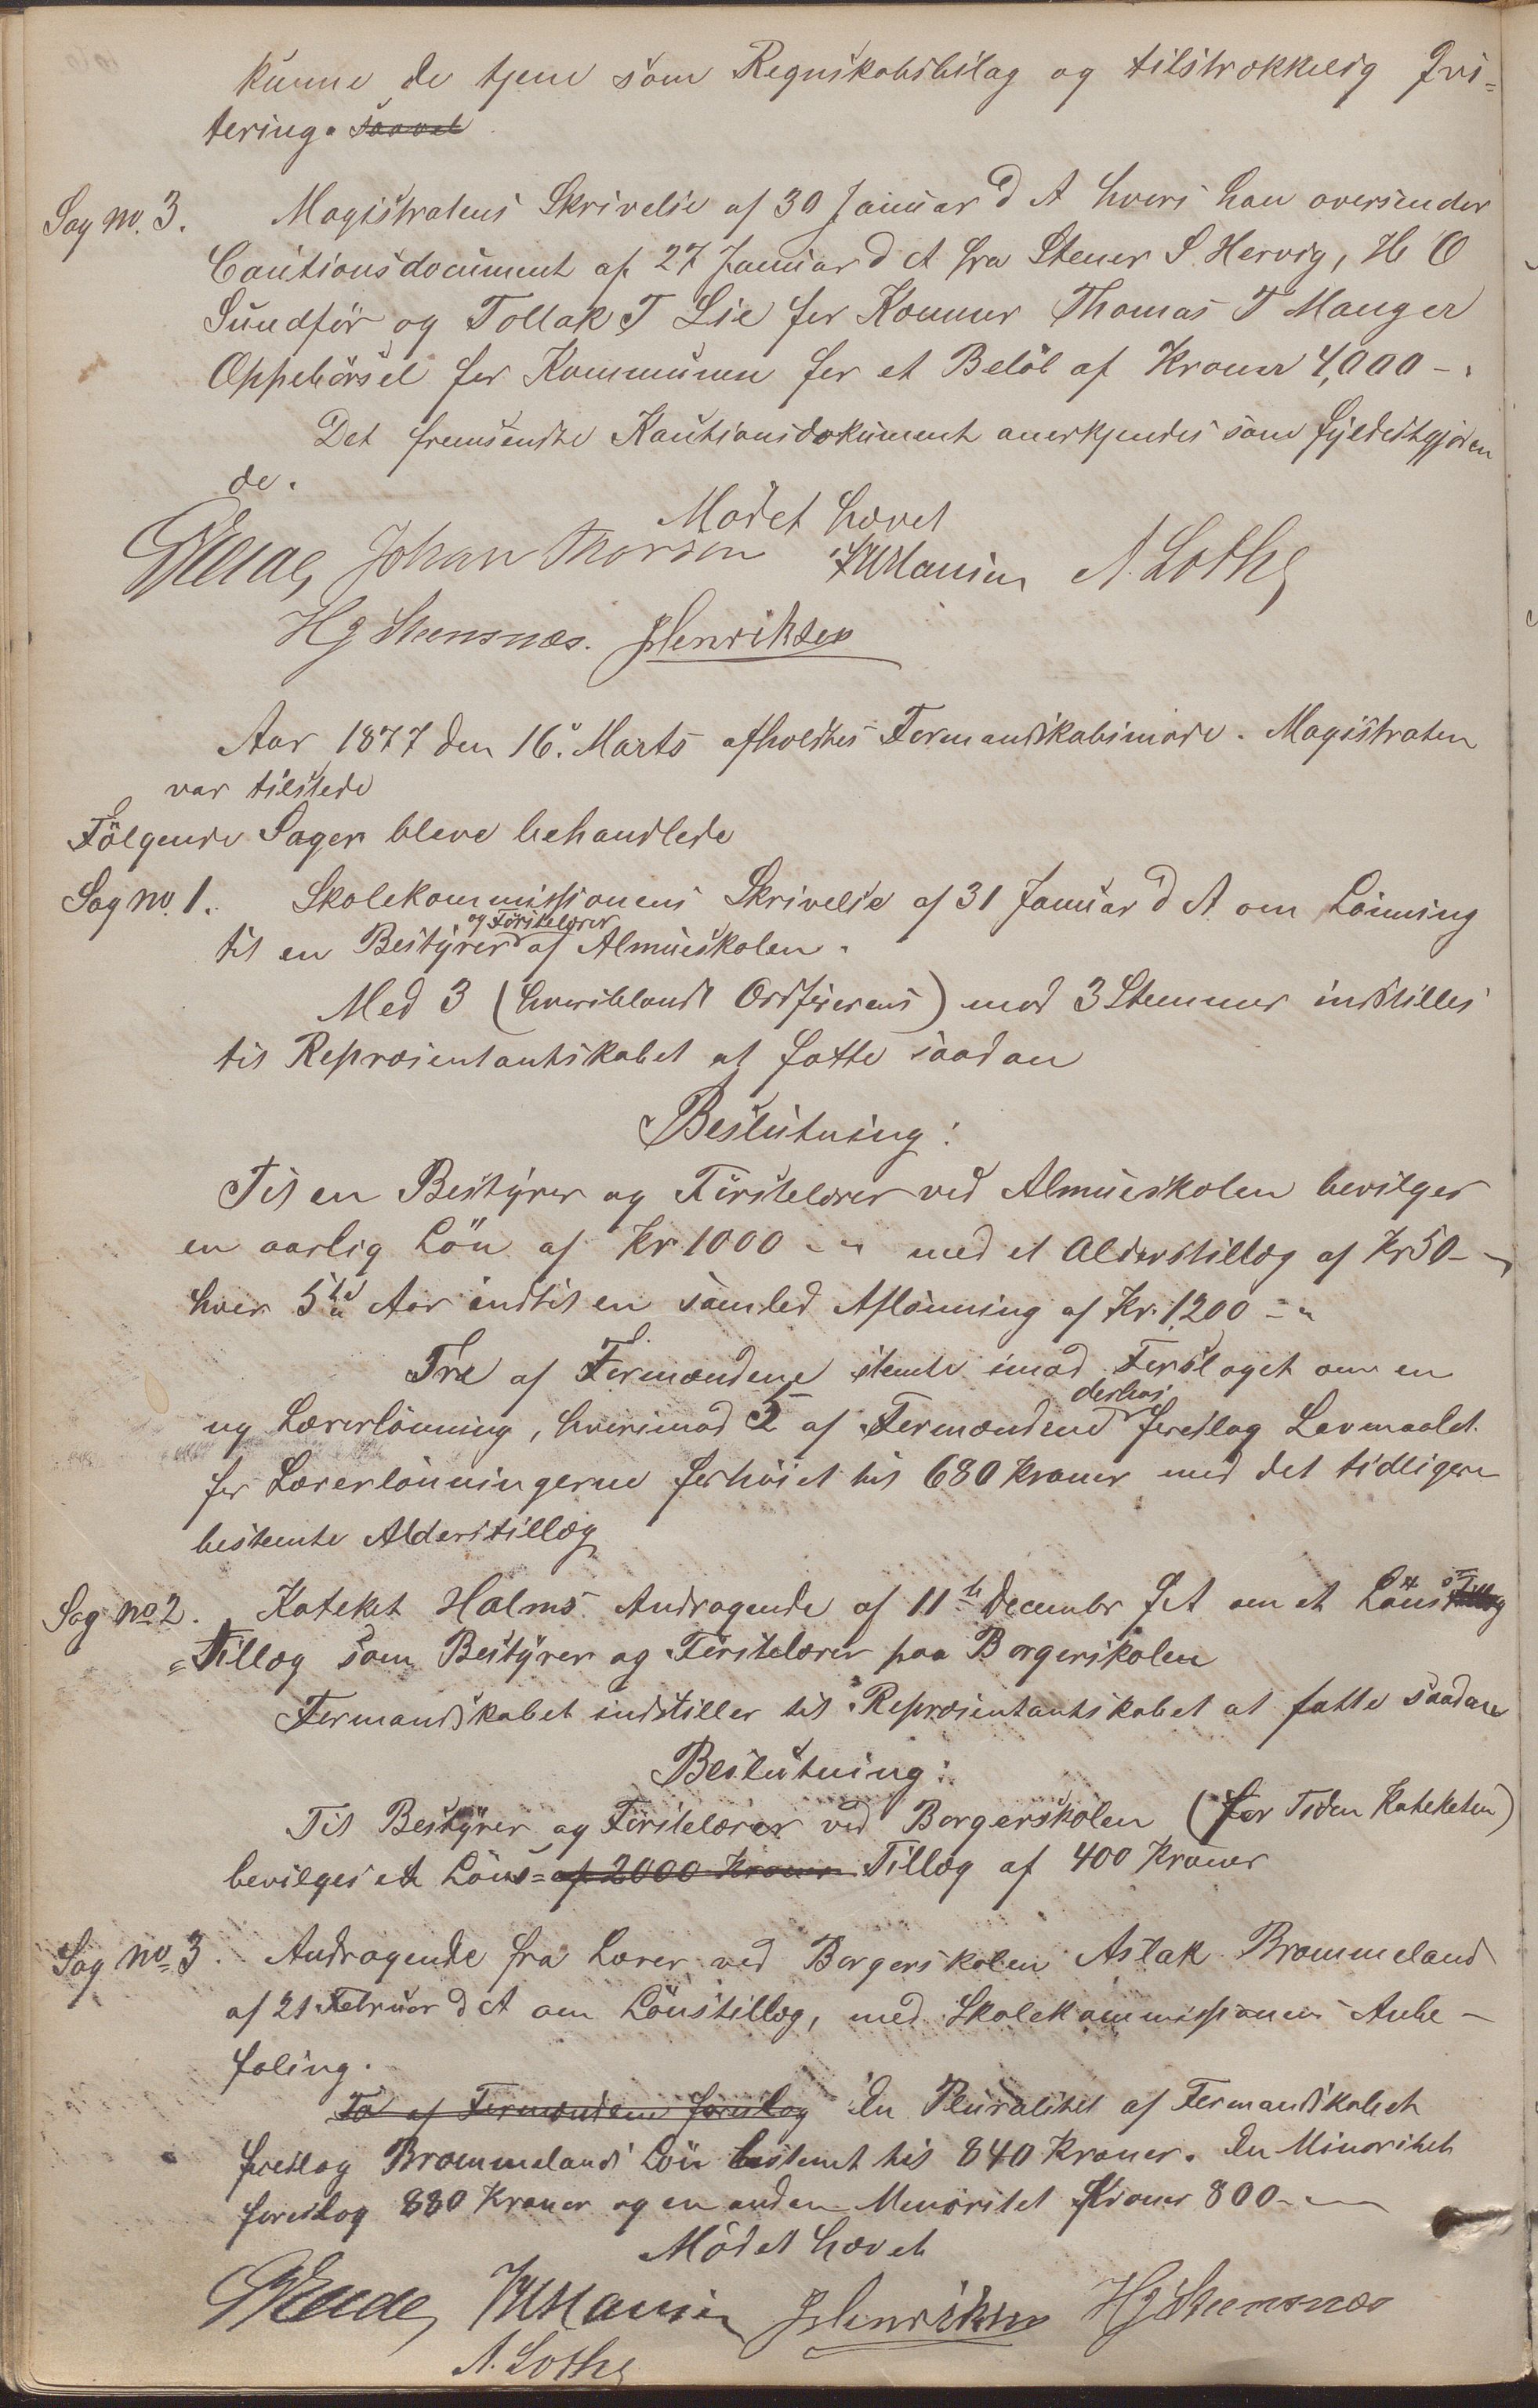 kunne de tjene som Regnskabsbilag og tilstrækkelig Qvi-
tering. saavel
Sag No. 3. Magistratens Skrivelse af 30 Januar d A hvori han oversender
Cautionsdocument af 27 Januar d A fra Stener S. Hervig, H O
Sundför og Tollak T Lie for Kæmner Thomas T Mangers
Oppebörsel for Kommunen for et Belöb af Kroner 4,000 -.
Det fremsendte Kautionsdokument anerkjendes som fyldestgjören
de.
Mödet hævet
Johan Thorsen A. Lothe
Hg Steensnæs. Henriksen
Aar 1877 den 16. Marts afholdtes Formandskabsmöde. Magistraten
var tilstede
Fölgende Sager bleve behandlede
Sag No. 1. Skolekommissionens Skrivelse af 31 Januar d A om Lönning
og Förstelærer
til en Bestÿrer af Almueskolen.
Med 3 (hvoriblandt Ordförerens) mod 3 Stemmer indstilles
til Repræsentantskabet at fatte saadan
Beslutning:
Til en Bestÿrer og Förstelærer ved Almueskolen bevilges
en aarlig Lön af Kr 1000 - " med et Alderstillæg af Kr 50 -
hver 5te Aar indtil en samled Aflönning af Kr. 1,200 - "
Tre af Formændene stemte imod Forslaget om en
derhos
ny Lærerlönning, hvorimod 5 af Formændene foreslog Lavmaalet
for Lærerlönningerne forhöiet til 680 Kroner med det tidligere
bestemte Alderstillæg
Sag No 2. Kateket Holms Andragende af 11te December f A om et Löns Tillæg
=Tillæg som Bestÿrer og Förstelærer paa Borgerskolen
Formandskabet indstiller til Repræsentantskabet at fatte saadan
Beslutning:
Til Bestÿrer og Förstelærer ved Borgerskolen (for Tiden Kateketen)
bevilges et Löns= af 2000 Kroner Tillæg af 400 Kroner
Sag No 3. Andragende fra Lærer ved Borgerskolen Aslak Brommeland
af 21 Februar d A om Lönstillæg, med Skolekommissionens Anbe-
faling.
To af Formændene foreslog En Pluralitet af Formandskabet
foreslog Brommelands Lön bestemt til 840 Kroner. En Minoritet
foreslog 880 Kroner og en anden Minoritet Kroner 800 -
Mödet hævet
Henriksen Hg Steensnæs
A. Lothe